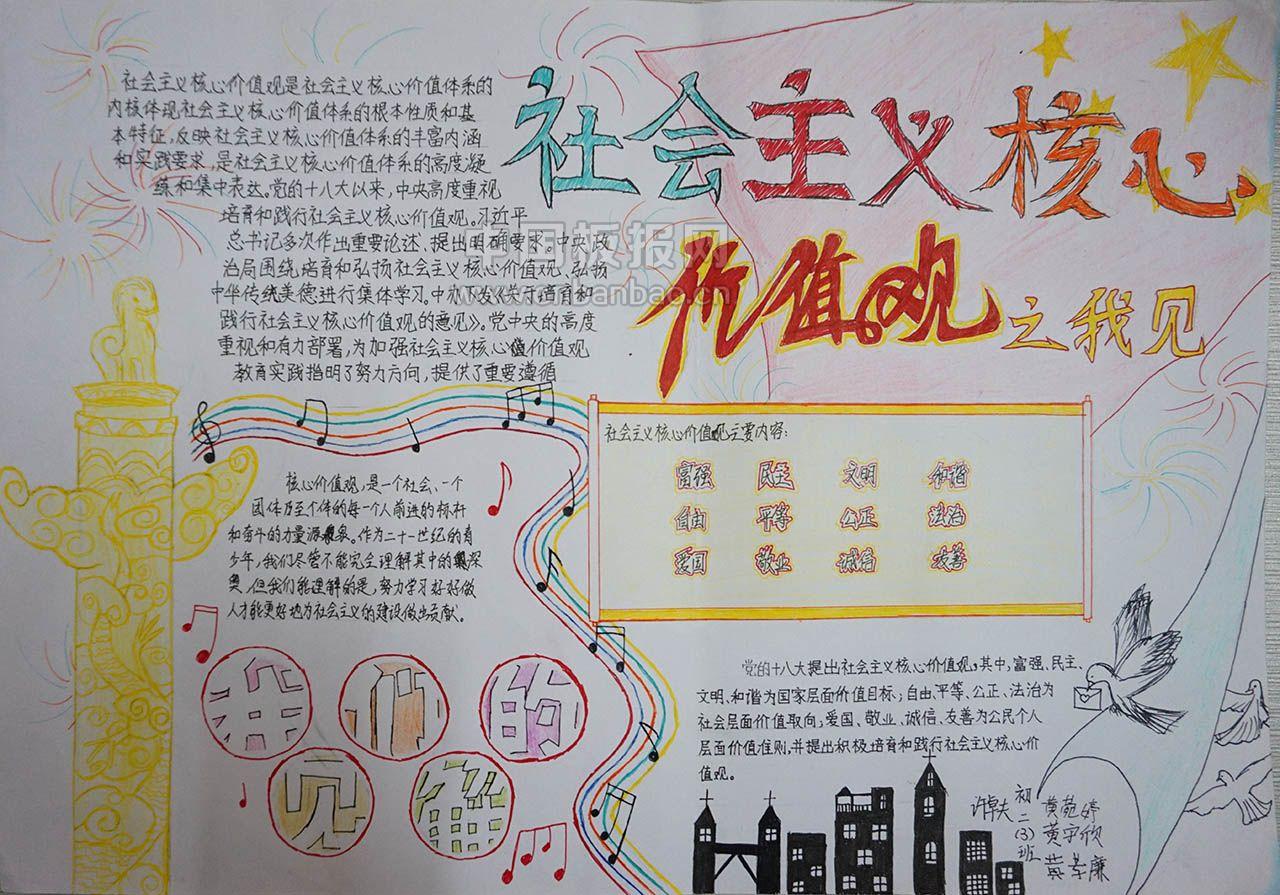 社会主义核心
价值观之我见
社会主义核心价值观是社会主义核心价值体系的
内核体现社会主义核心价值体系的根本性质和基
本特征，反映社会主义核心价值体系的丰富内涵
和实践要求，是社会主义核心价值体系的高度凝
练和集中表达。党的十八大以来，中央高度重视
培育和践行社会主义核心价值观。习近平
总书记多次作出重要论述、提出明确要求。中央政
治局围绕培育和弘扬社会主义核心价值观、弘扬
中华传统美德进行集体学习。中办下发《关于培育和
践行社会主义核心价值观的意见》。党中央的高度
重视和有力部署，为加强社会主义核心价值观
教育实践指明了努力方向，提供了重要遵循
中国板报网
社会主义核心价值观主要内容：
富强 民主 文明 和谐
自由 平等 公正 法治
爱国 敬业 诚信 友善
核心价值观，是一个社会、一个
团体乃至个体的每一个人前进的标杆
和奋斗的力量源泉。作为二十一世纪的青
少年，我们尽管不能完全理解其中的深
奥，但我们能理解的是，努力学习好好做
人才能更好地为社会主义的建设做出贡献。
们的
见解
党的十八大提出社会主义核心价值观，其中，富强、民主、
文明、和谐为国家层面价值目标；自由、平等、公正、法治为
社会层面价值取向；爱国、敬业、诚信、友善为公民个人
层面价值准则，并提出积极培育和践行社会主义核心价
值观。
初二(3)班
黄菀婷
黄宇欣